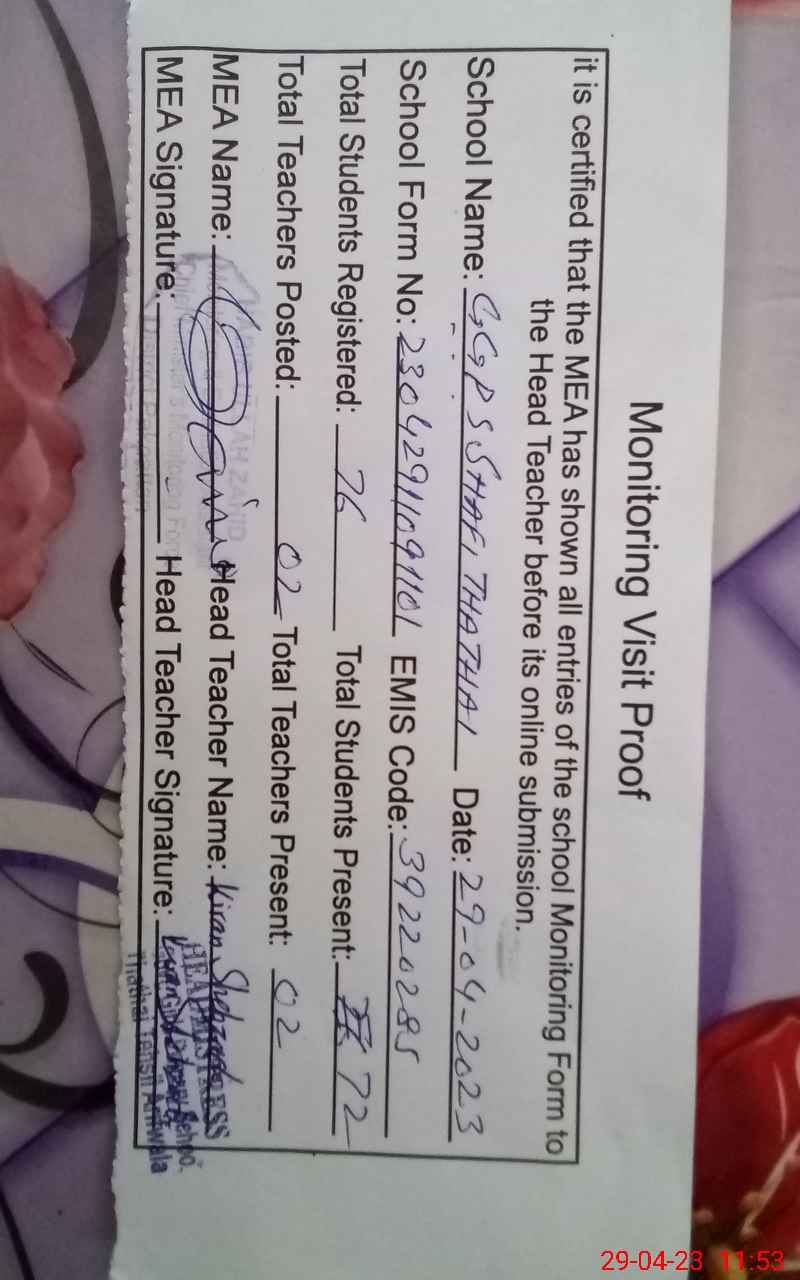 Monitoring Visit Proof
it is certified that the MEA has shown all entries of the school Monitoring Form to
the Head Teacher before its online submission.
School Name: GGPS SHAFI THATHAI Date: 29-04-2023
School Form No: 23042911091101 EMIS Code: 39220285
Total Students Registered: 76 Total Students Present: 72
Total Teachers Posted: 02 Total Teachers Present: 02
MEA Name: Head Teacher Name: Kiran Shahzadi
MEA Signature: Head Teacher Signature:
HEADMISTRESS
Thathai Tehsil Arifwala
29-04-23 11:53